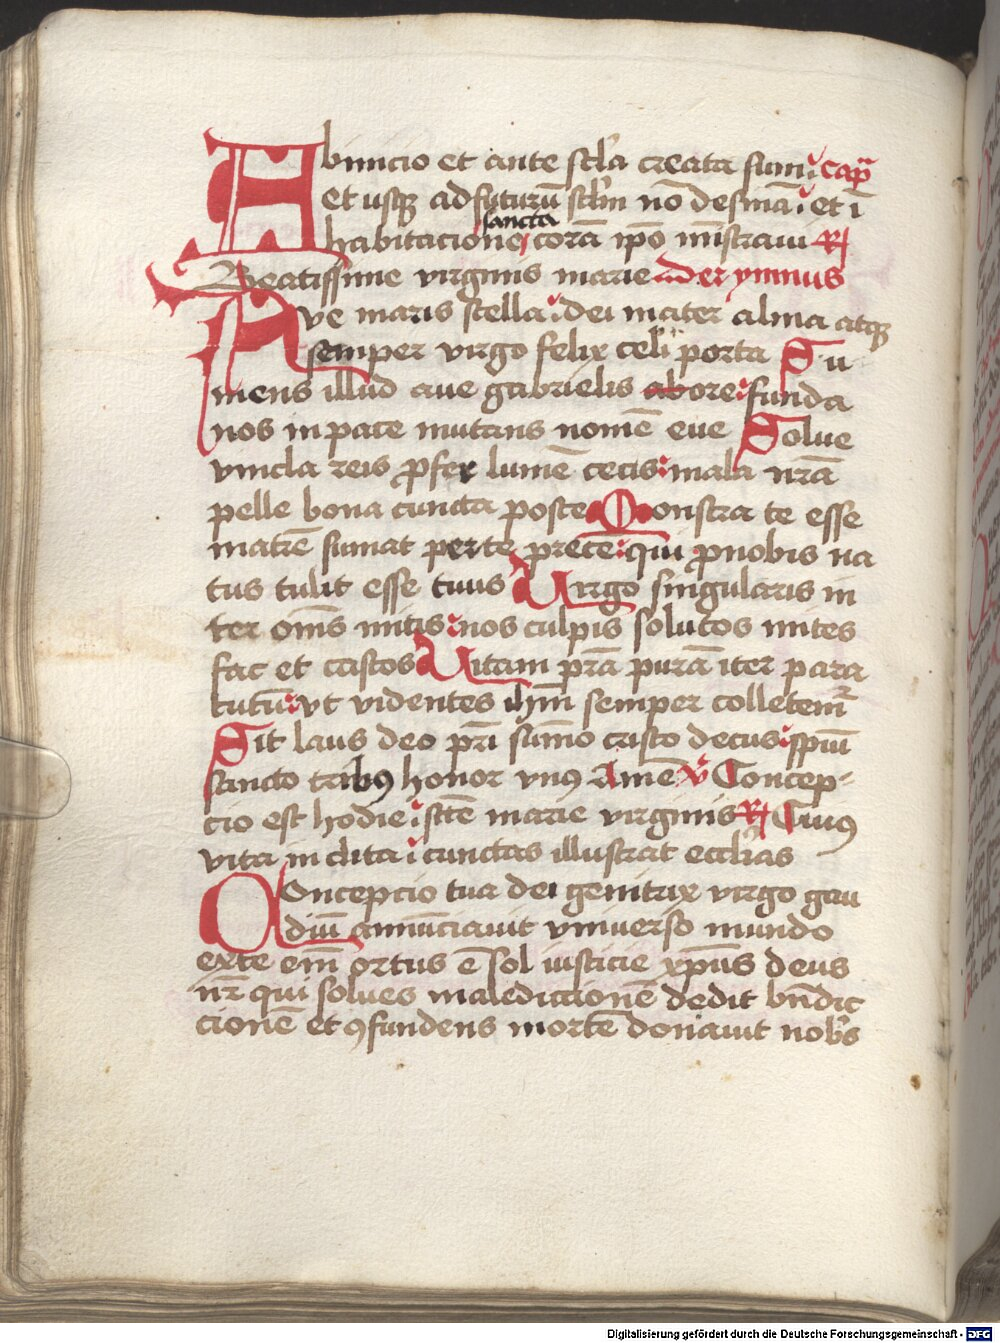 Abinicio et ante sctĺa creata sum: capĩ
et usqȝ ad futurū sctĺm nō desinā: et ĩ
sancta
habitacione, corā ipō mĩstraui R
Beatissime virginis marie Der ymnus
Ave maris stella: dei mater alma atqȝ
semper virgo felix celi porta Su
mens illud aue gabrielis ab ore: funda
nos in pace mutans nomē eue Solue
vincla reis ꝓfer lumē cecis: mala nrā
pelle bona cuncta posce Monstra te esse
matrē sumat per te precē: qui ꝓ nobis na
tus tulit esse tuus Virgo singularis in
ter om̄s mitis: nos culpis solutos mites
fac et castos Vitam prā purā iter para
tutū: vt videntes ihm̄ semper colletemr
Sit laus deo pri sum̄o cristo decus: spũi
sancto tribꝯ honor vnꝯ Amē V Concep-
cio est hodie: scte marie virginis R Cuiꝯ
vita inclita: cunctas illustrat ecclĩas
Concepcio tua dei genitrix virgo gau
diū annūciauit vniuerso mundo
ex te em̄ ortus ē sol iusticie xp̄us deus
nr̄ qui solues malediccionē dedit bn̄dic
cionē et ꝯfundens mortē donauit nobĩs
Digitalisierung gefördert durch die Deutsche Forschungsgemeinschaft - DFG